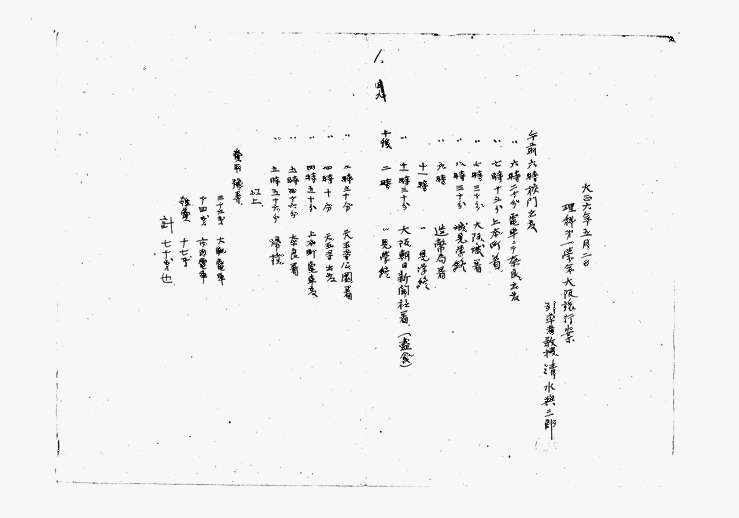 大正六年五月二日
理科第一学年大阪旅行案
引率者教授 清水與三郎
午前 六時 校門出発
〃 六時二十分 電車ニテ奈良出発
〃 七時十五分 上本町着
〃 七時三十分 大阪城着
〃 八時三十分 城見学終
〃 九時 造幣局着
十一時 〃 見学終
〃 十一時三十分 大阪朝日新聞社着(昼食)
午後 二時 〃 見学終
〃 二時三十分 天王寺公園着
〃 四時十分 天王寺出発
〃 四時五十分 上本町電車発
〃 五時四十六分 奈良着
〃 五時五十六分 帰校
以上
費用予算
三十九銭 大軌電車
十四銭 市内電車
雑費 十七銭
計 七十銭也